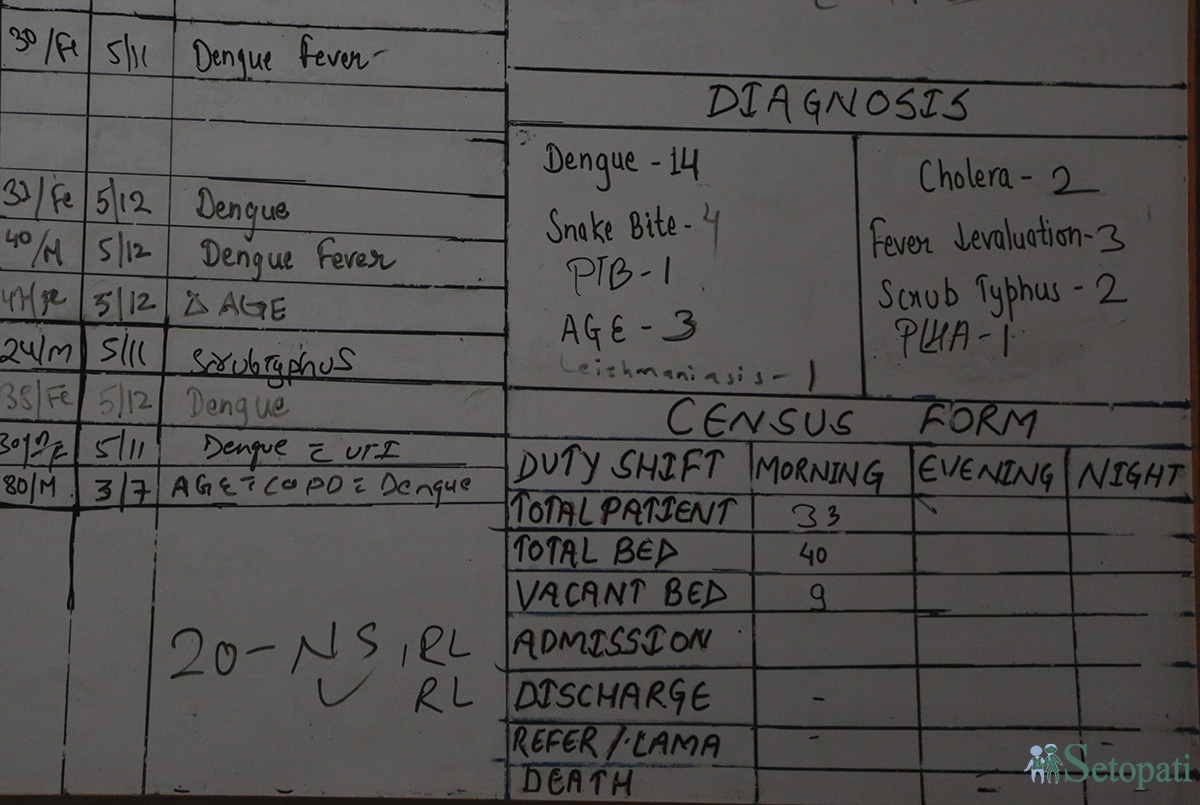 30/Fe 5/11 Dengue Fever-
Fe 5/12 Dengue
40/M 5/12 Dengue Fever
5/12 Δ AGE
24/M 5/11 ScrubTyphus
38/Fe 5/12 Dengue
5/11 Dengue c̄ UTI
80/M 3/7 AGE c̄ COPD c̄ Dengue
20- NS, RL
RL
DIAGNOSIS
Dengue - 14
Snake Bite - 4
PTB - 1
AGE - 3
Leishmaniasis - 1
Cholera - 2
Fever Levaluation - 3
Scrub Typhus - 2
PLHA - 1
CENSUS FORM
DUTY SHIFT MORNING EVENING NIGHT
TOTAL PATIENT 33
TOTAL BED 40
VACANT BED 9
ADMISSION
DISCHARGE -
REFER / LAMA - -
DEATH -
Setopati